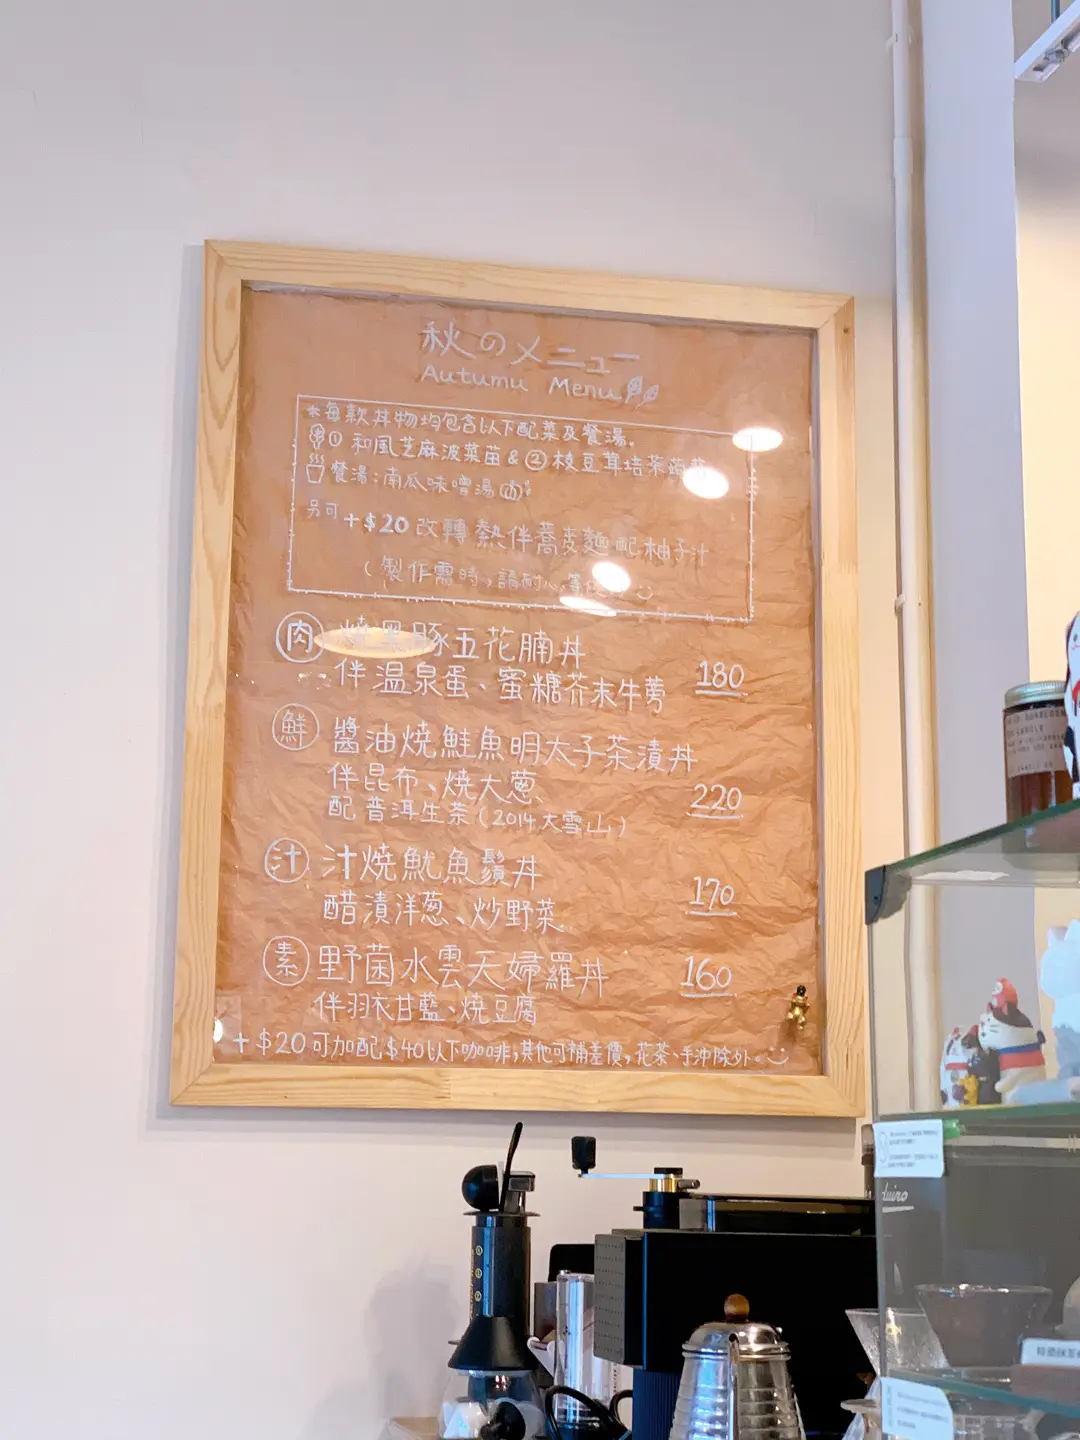 秋のメニュー
Autumu Menu
*每款丼物均包含以下配菜及餐湯。
① 和風芝麻波菜苗 & ② 枝豆茸培茶蒟蒻
餐湯:南瓜味噌湯
另可+$20 改轉 熱伴蕎麥麵配柚子汁
(製作需時,請耐心等
肉 燒黑豚五花腩丼
伴溫泉蛋、蜜糖芥末牛蒡 180
鮮 醬油燒鮭魚明太子茶漬丼
伴昆布、燒大蔥
配普洱生茶(2014大雪山) 220
汁 汁燒魷魚鬚丼
醋漬洋蔥、炒野菜。 170
素 野菌水雲天婦羅丼 160
伴羽衣甘藍、燒豆腐
+$20可加配$40以下咖啡,其他可補差價,花茶、手沖除外。